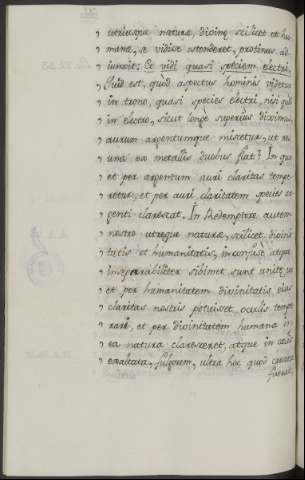 „ utriusque naturæ, divinæ scilicet et hu-
„ manæ, se vidisse ostenderet, protinus ad-
„ iunxit: Et vidi quasi speciem electri,
„ Quid est, quòd aspectus hominis videtur
„ in trono, quasi species electri, nisi quòd
„ in electro, sicut longè superius diximus,
„ aurum argentumque miscetur, ut res
„ una ex metallis duobus fiat? In qua
„ et per argentum auri claritas tempe-
„ retur, et per auri claritatem species ar-
„ genti clarescat. In Redemptore autem
„ nostro utræque naturæ, scilicet divini-
„ tatis et humanitatis, inconfusè atque
„ inseparabiliter sibimet sunt unitæ, ut
„ et per humanitatem divinitatis eius
„ claritas nostris potuisset oculis tempe-
„ rari, et per divinitatem humana in
„ ea natura claresceret, atque in
„ exaltata, fulgorem, ultra hoc quod creata
fuerat,